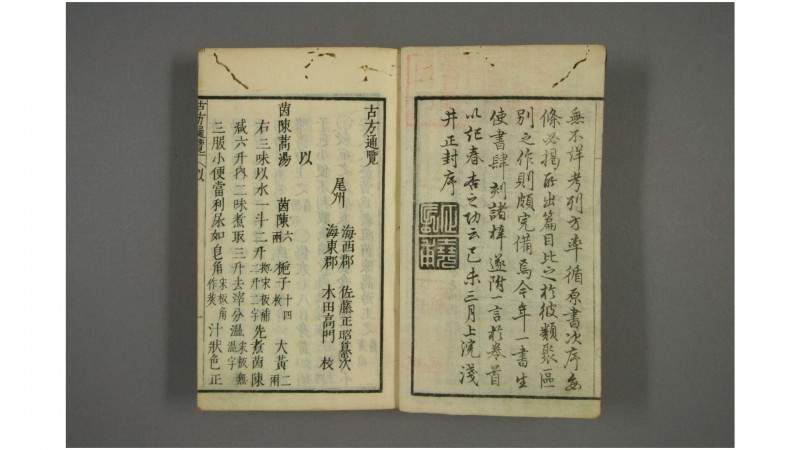 無不詳考列方率循原書次序每
條必揭所出篇目比之於彼類聚區
別之作則頗完備焉今年一書生
使書肆刻諸梓遂附一言於卷首
以記春杏之功云己未三月上浣淺
井正封序
古方通覽
尾州
海西郡 佐藤正昭纂次
海東郡 木田高門 校
以
茵陳蒿湯 茵陳六兩 梔子十四枚 大黃二兩
右三味以水一斗二升 宋板補二升二字 先煮茵陳
減六升內二味煮取三升去滓分溫 宋板無溫字
三服小便當利尿如皂角 宋板角作莢 汁狀色正
古方通覽 以